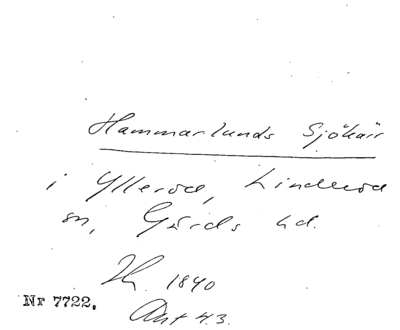 Hammarlunds Sjökärr
i Yllerod, Linderod
sn, Gärds hd.
Th. 1840
Nr 7722.
Ant 43.